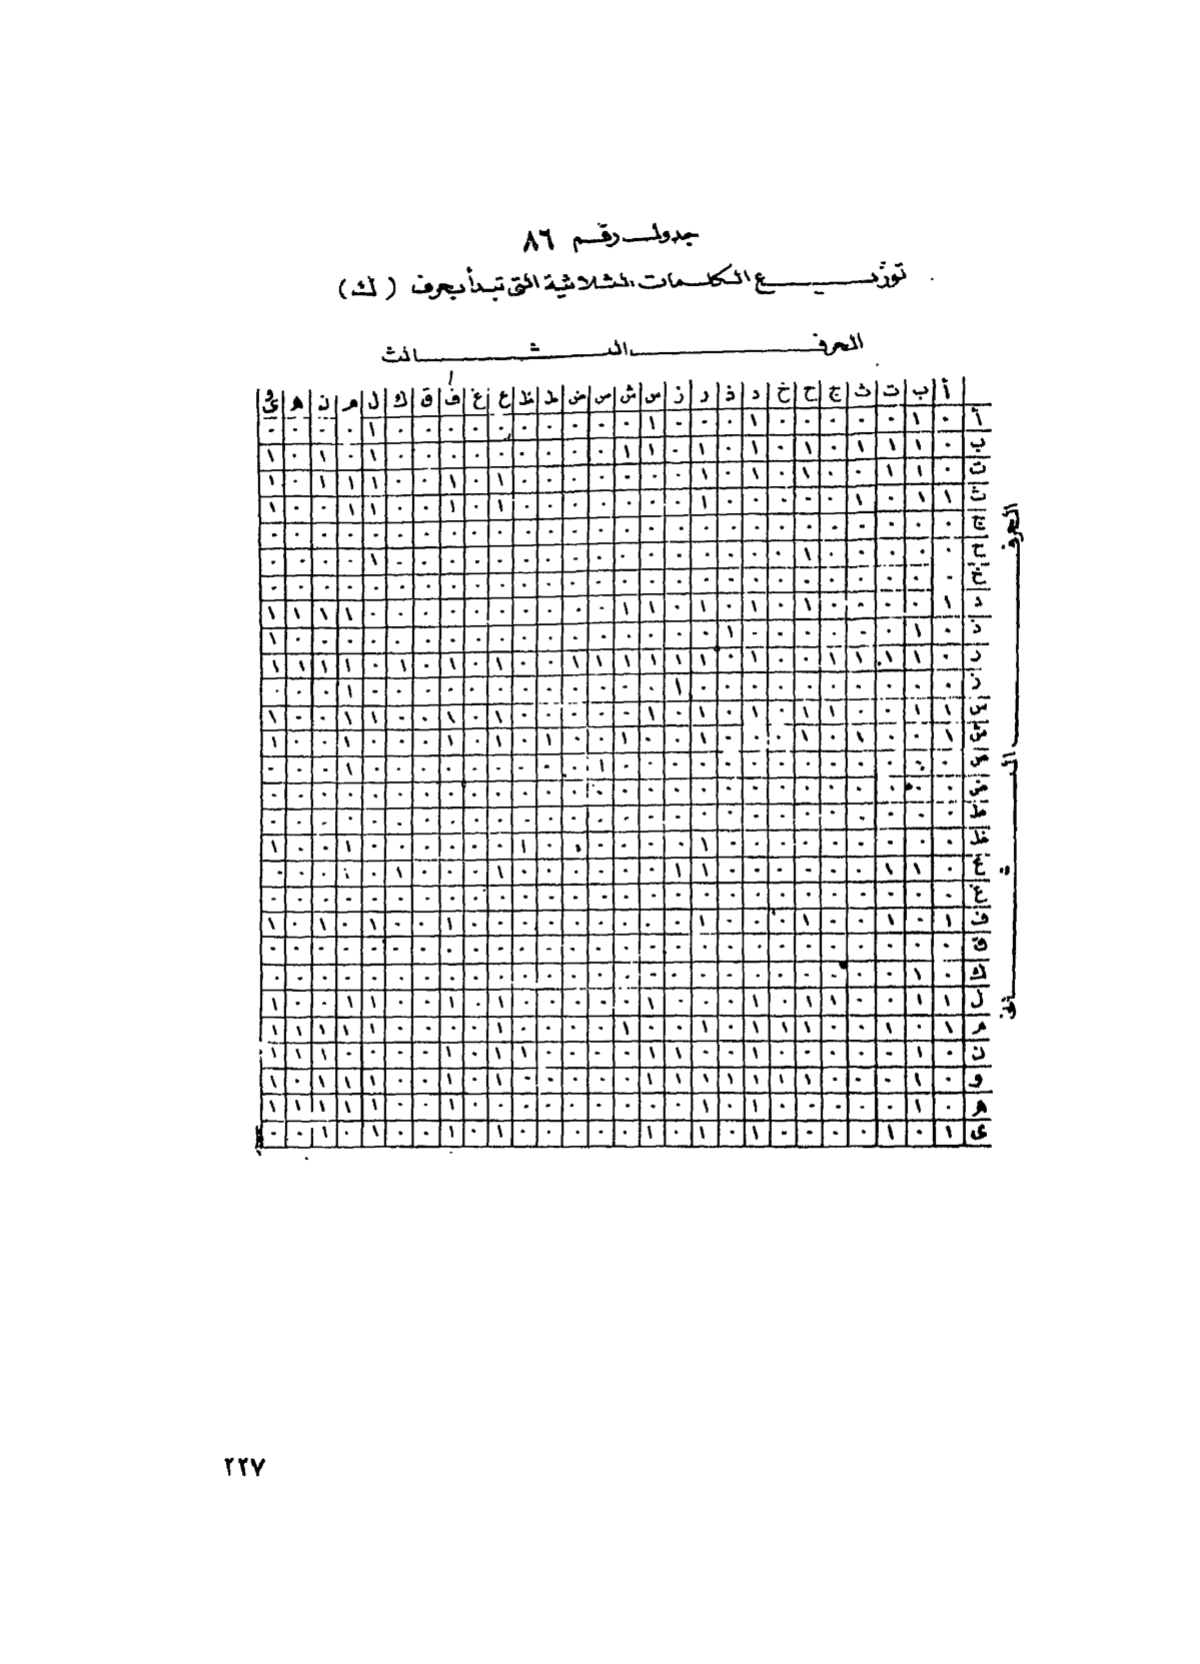 جدول رقم ٨٦
توزيع الكلمات الثلاثية التى تبدأ بحرف (ك)
الحرف الثالث
أ ب ت ث ج ح خ د ذ ر ز س ش ص ض ط ظ ع غ ف ق ك ل م ن ه وى
أ ٠ ١ ٠ ٠ ٠ ٠ ٠ ١ ٠ ٠ ٠ ١ ٠ ٠ ٠ ٠ ٠ ٠ ٠ ٠ ٠ ٠ ١ ٠ ٠ ٠ ٠
ب ٠ ١ ١ ١ ٠ ١ ٠ ١ ٠ ١ ٠ ١ ١ ٠ ٠ ٠ ٠ ٠ ٠ ٠ ٠ ٠ ١ ٠ ١ ٠ ١
ت ٠ ١ ١ ٠ ٠ ١ ٠ ١ ٠ ١ ٠ ٠ ٠ ٠ ٠ ٠ ٠ ١ ٠ ١ ٠ ٠ ١ ١ ١ ٠ ١
ث ١ ١ ٠ ١ ٠ ٠ ٠ ٠ ٠ ١ ٠ ٠ ٠ ٠ ٠ ٠ ٠ ١ ٠ ١ ٠ ٠ ١ ١ ٠ ٠ ١
ج ٠ ٠ ٠ ٠ ٠ ٠ ٠ ٠ ٠ ٠ ٠ ٠ ٠ ٠ ٠ ٠ ٠ ٠ ٠ ٠ ٠ ٠ ٠ ٠ ٠ ٠ ٠
ح ٠ ٠ ٠ ٠ ٠ ١ ٠ ٠ ٠ ٠ ٠ ٠ ٠ ٠ ٠ ٠ ٠ ٠ ٠ ٠ ٠ ٠ ١ ٠ ٠ ٠ ٠
خ ٠ ٠ ٠ ٠ ٠ ٠ ٠ ٠ ٠ ٠ ٠ ٠ ٠ ٠ ٠ ٠ ٠ ٠ ٠ ٠ ٠ ٠ ٠ ٠ ٠ ٠ ٠
د ١ ٠ ٠ ٠ ٠ ١ ٠ ١ ٠ ١ ٠ ١ ١ ٠ ٠ ٠ ٠ ٠ ٠ ٠ ٠ ٠ ٠ ١ ١ ١ ١
ذ ٠ ١ ٠ ٠ ٠ ٠ ٠ ٠ ١ ٠ ٠ ٠ ٠ ٠ ٠ ٠ ٠ ٠ ٠ ٠ ٠ ٠ ٠ ٠ ٠ ٠ ١
ر ٠ ١ ١ ١ ١ ٠ ٠ ١ ٠ ١ ١ ١ ١ ١ ١ ٠ ٠ ١ ٠ ١ ٠ ١ ٠ ١ ١ ١ ١
ز ٠ ٠ ٠ ٠ ٠ ٠ ٠ ٠ ٠ ٠ ١ ٠ ٠ ٠ ٠ ٠ ٠ ٠ ٠ ٠ ٠ ٠ ٠ ١ ٠ ٠ ٠
س ١ ١ ٠ ٠ ١ ١ ٠ ١ ٠ ١ ٠ ١ ٠ ٠ ٠ ٠ ٠ ١ ٠ ١ ٠ ٠ ١ ١ ٠ ٠ ١
ش ١ ٠ ٠ ١ ٠ ١ ٠ ٠ ٠ ١ ٠ ٠ ١ ٠ ٠ ١ ٠ ١ ٠ ١ ٠ ٠ ٠ ١ ٠ ٠ ١
ص ٠ ٠ ٠ ٠ ٠ ٠ ٠ ٠ ٠ ٠ ٠ ٠ ٠ ١ ٠ ٠ ٠ ٠ ٠ ٠ ٠ ٠ ٠ ١ ٠ ٠ ٠
ض ٠ ٠ ٠ ٠ ٠ ٠ ٠ ٠ ٠ ٠ ٠ ٠ ٠ ٠ ٠ ٠ ٠ ٠ ٠ ٠ ٠ ٠ ٠ ٠ ٠ ٠ ٠
ط ٠ ٠ ٠ ٠ ٠ ٠ ٠ ٠ ٠ ٠ ٠ ٠ ٠ ٠ ٠ ٠ ٠ ٠ ٠ ٠ ٠ ٠ ٠ ٠ ٠ ٠ ٠
ظ ٠ ٠ ٠ ٠ ٠ ٠ ٠ ٠ ٠ ١ ٠ ٠ ٠ ٠ ٠ ٠ ١ ٠ ٠ ٠ ٠ ٠ ٠ ١ ٠ ٠ ١
ع ٠ ١ ١ ٠ ٠ ٠ ٠ ٠ ٠ ١ ١ ٠ ٠ ٠ ٠ ٠ ٠ ١ ٠ ٠ ٠ ١ ٠ ٠ ٠ ٠ ٠
غ ٠ ٠ ٠ ٠ ٠ ٠ ٠ ٠ ٠ ٠ ٠ ٠ ٠ ٠ ٠ ٠ ٠ ٠ ٠ ٠ ٠ ٠ ٠ ٠ ٠ ٠ ٠
ف ١ ٠ ١ ٠ ٠ ١ ٠ ٠ ٠ ١ ٠ ٠ ٠ ٠ ٠ ٠ ٠ ٠ ٠ ١ ٠ ٠ ١ ٠ ١ ٠ ١
ق ٠ ٠ ٠ ٠ ٠ ٠ ٠ ٠ ٠ ٠ ٠ ٠ ٠ ٠ ٠ ٠ ٠ ٠ ٠ ٠ ٠ ٠ ٠ ٠ ٠ ٠ ٠
ك ٠ ١ ٠ ٠ ٠ ٠ ٠ ٠ ٠ ٠ ٠ ٠ ٠ ٠ ٠ ٠ ٠ ٠ ٠ ٠ ٠ ٠ ٠ ٠ ٠ ٠ ٠
ل ١ ١ ٠ ٠ ١ ١ ٠ ١ ٠ ٠ ٠ ١ ٠ ٠ ٠ ٠ ٠ ١ ٠ ١ ٠ ٠ ١ ١ ٠ ٠ ١
م ١ ٠ ١ ٠ ٠ ١ ١ ١ ٠ ١ ٠ ٠ ١ ٠ ٠ ٠ ٠ ١ ٠ ٠ ٠ ٠ ١ ١ ١ ١ ١
ن ٠ ١ ٠ ٠ ٠ ٠ ٠ ١ ٠ ٠ ١ ١ ٠ ٠ ٠ ٠ ١ ١ ٠ ١ ٠ ٠ ٠ ٠ ١ ١ ١
و ٠ ١ ٠ ٠ ٠ ١ ١ ١ ١ ١ ١ ١ ٠ ٠ ٠ ٠ ٠ ١ ٠ ١ ٠ ٠ ١ ١ ١ ٠ ١
ه ٠ ١ ٠ ٠ ٠ ٠ ٠ ١ ٠ ١ ٠ ٠ ٠ ٠ ٠ ٠ ٠ ٠ ٠ ١ ٠ ٠ ١ ١ ١ ١ ١
ى ١ ٠ ١ ٠ ٠ ٠ ٠ ١ ٠ ١ ٠ ١ ٠ ٠ ٠ ٠ ٠ ١ ٠ ١ ٠ ٠ ١ ٠ ١ ٠ ٠
الحرف الثانى
٢٢٧